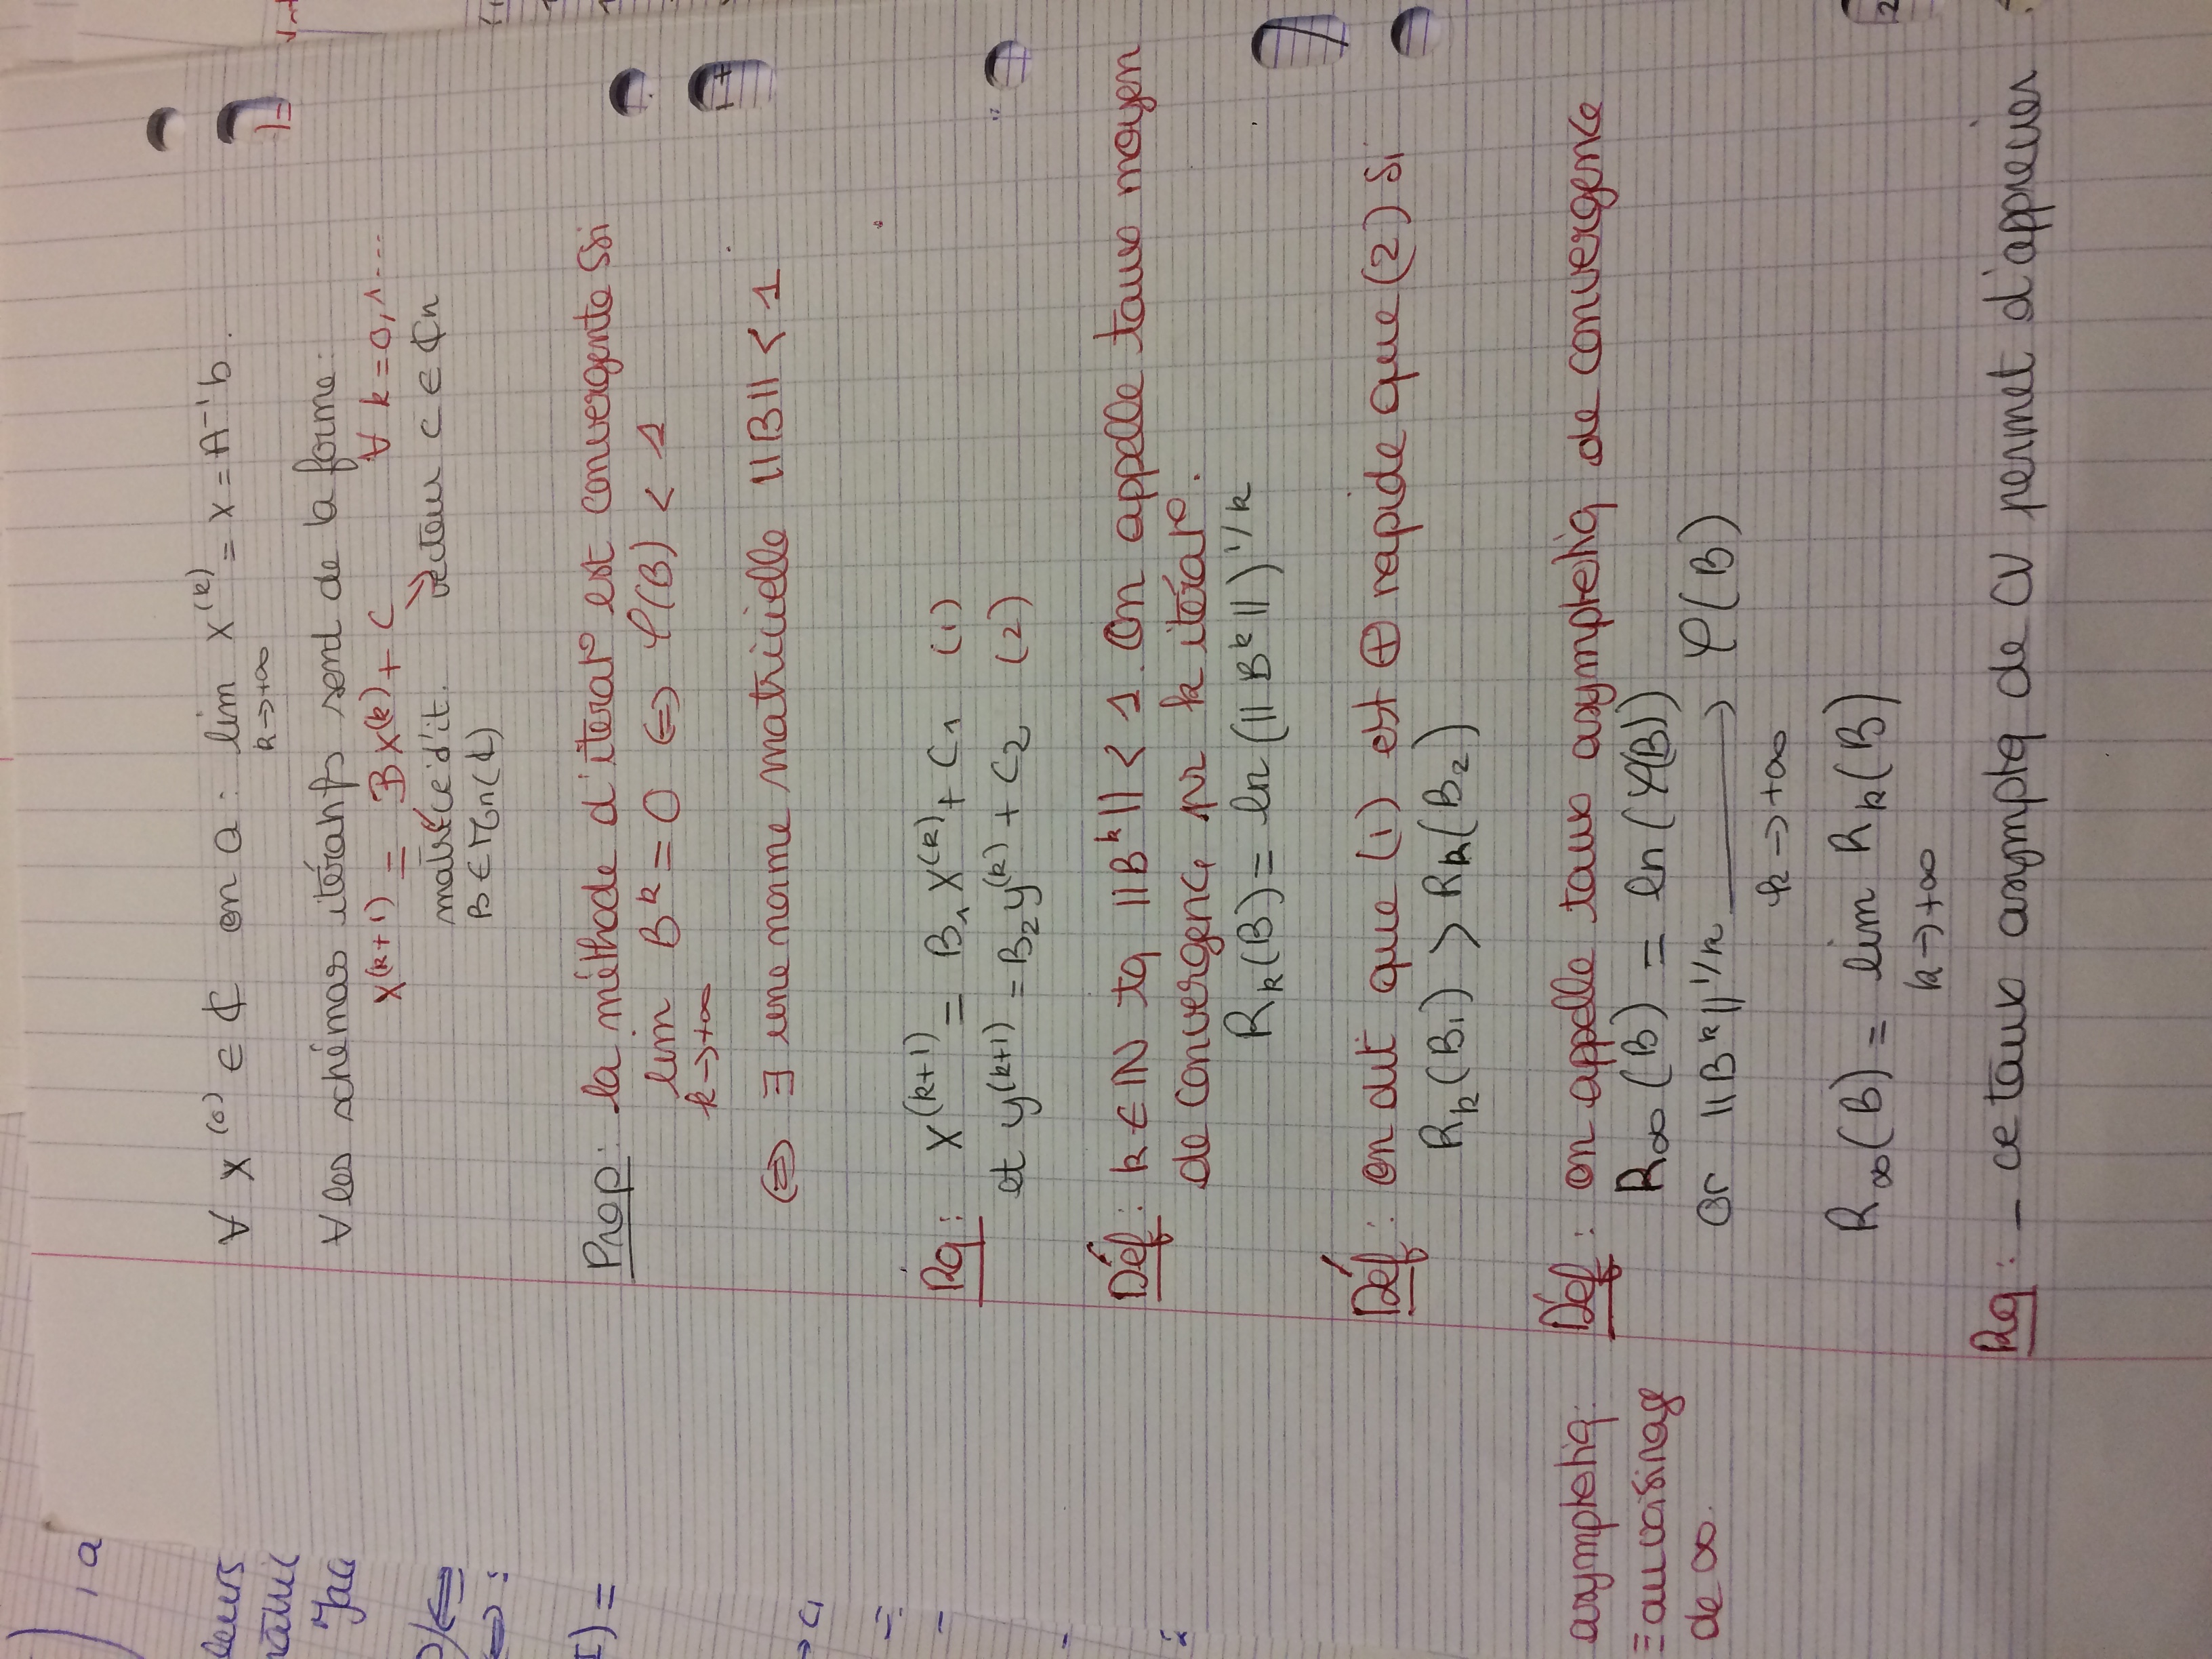 ∀ x^(0) ∈ ℂ on a : lim x^(k) = x = A^-1 b.
k→+∞
∀ les schémas itératifs sont de la forme :
x^(k+1) = Bx^(k) + C ∀ k=0,1...
matrice d'it. vecteur c ∈ ℂn
B ∈ Mn(ℂ)
Prop : la méthode d'itérat° est convergente ssi
lim B^k = 0 ⇔ ρ(B) < 1
k→+∞
⇔ ∃ une norme matricielle ||B|| < 1
Rq : X^(k+1) = B₁X^(k) + C₁ (1)
et y^(k+1) = B₂y^(k) + C₂ (2)
Déf : k ∈ ℕ tq ||B^k|| < 1. On appelle taux moyen
de convergence pr k itérat°.
R_k(B) = ln(||B^k||)^1/k
Déf : on dit que (1) est ⊕ rapide que (2) si
R_k(B₁) > R_k(B₂)
Déf : on appelle taux asymptotiq de convergence
asymptotiq.
≡ au voisinage
de ∞.
R∞(B) = ln(ρ(B))
or ||B^k||^1/k ⟶ ρ(B)
k→+∞
R∞(B) = lim R_k(B)
k→+∞
Rq : – ce taux asymptq de CV permet d'apprécier
, a
leurs
Jac
⇔
⇔ :
I) =
→ C₁